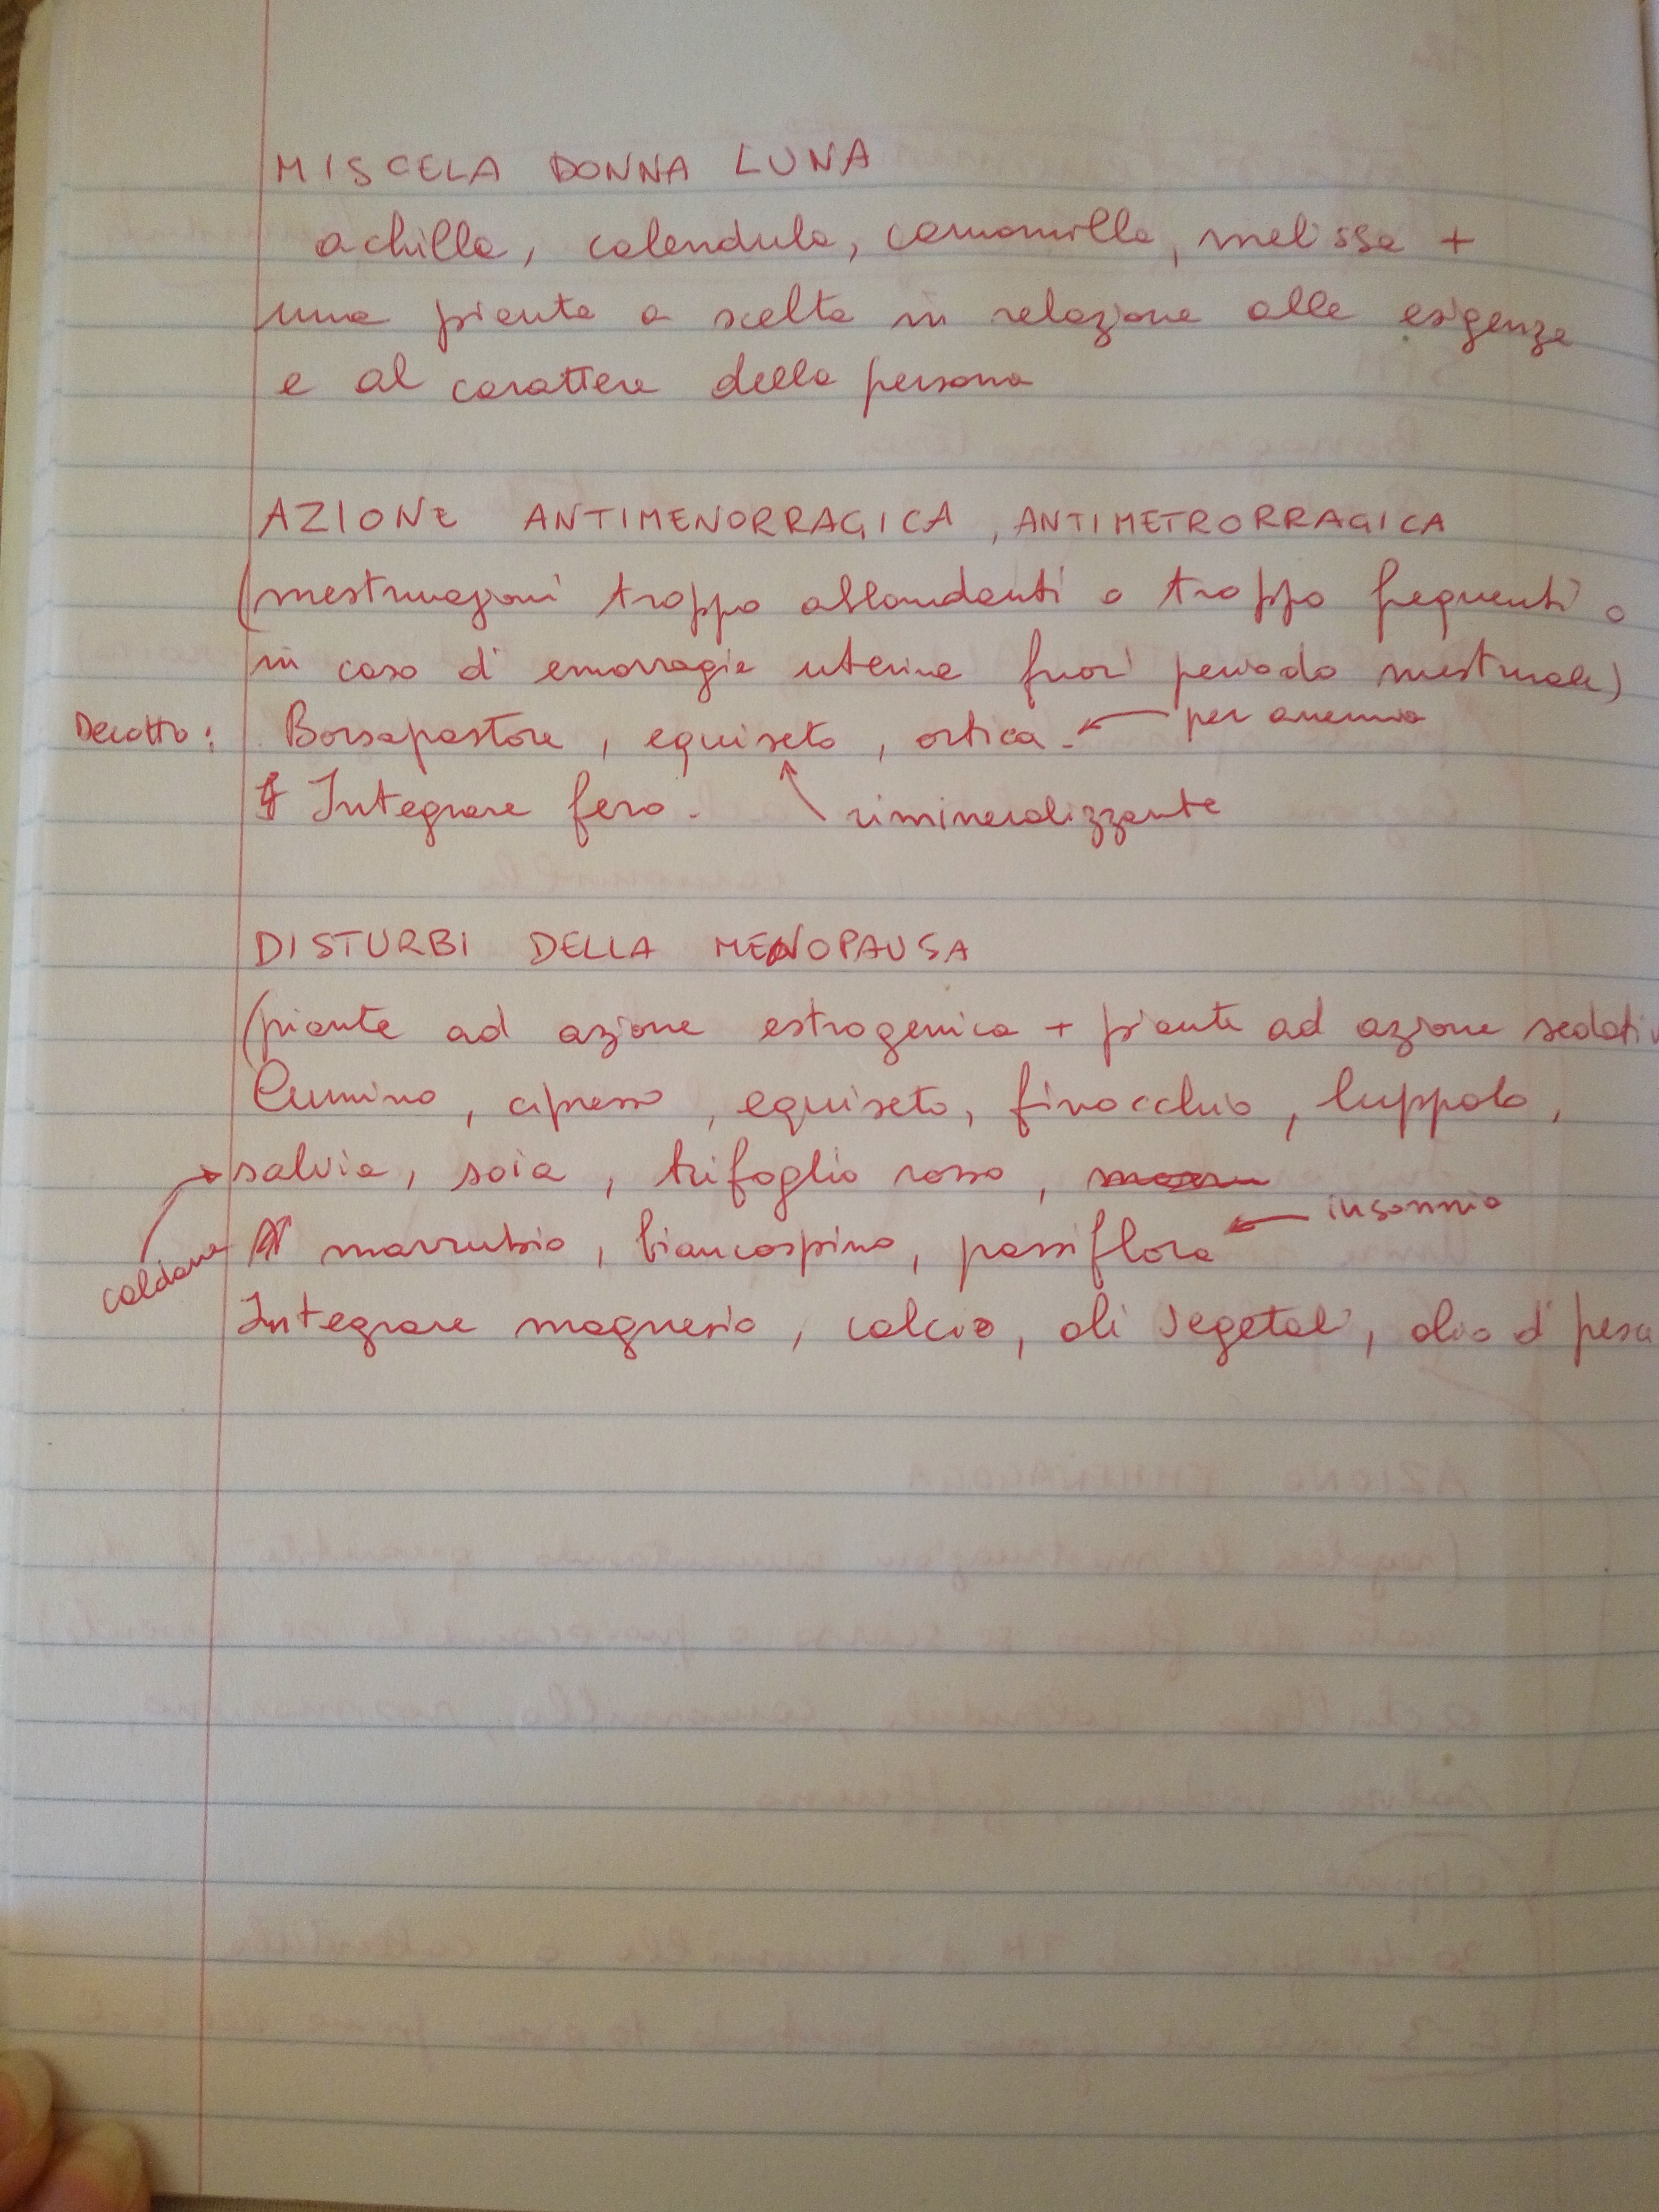 MISCELA DONNA LUNA
achillea, calendula, camomilla, melissa +
una pianta a scelta in relazione alle esigenze
e al carattere della persona
AZIONE ANTIMENORRAGICA, ANTIMETRORRAGICA
(mestruazioni troppo abbondanti o troppo frequenti o
in caso di emorragie uterine fuori periodo mestruale)
Decotto: Borsapastore, equiseto, ortica. ← per anemia
Integrare ferro. rimineralizzante
DISTURBI DELLA MENOPAUSA
(piante ad azione estrogenica + piante ad azione sedativ
Cumino, cipresso, equiseto, finocchio, luppolo,
salvia, soia, trifoglio rosso,
← insonnia
caldane marrubio, biancospino, passiflora
Integrare magnesio, calcio, oli vegetali, olio di pesc